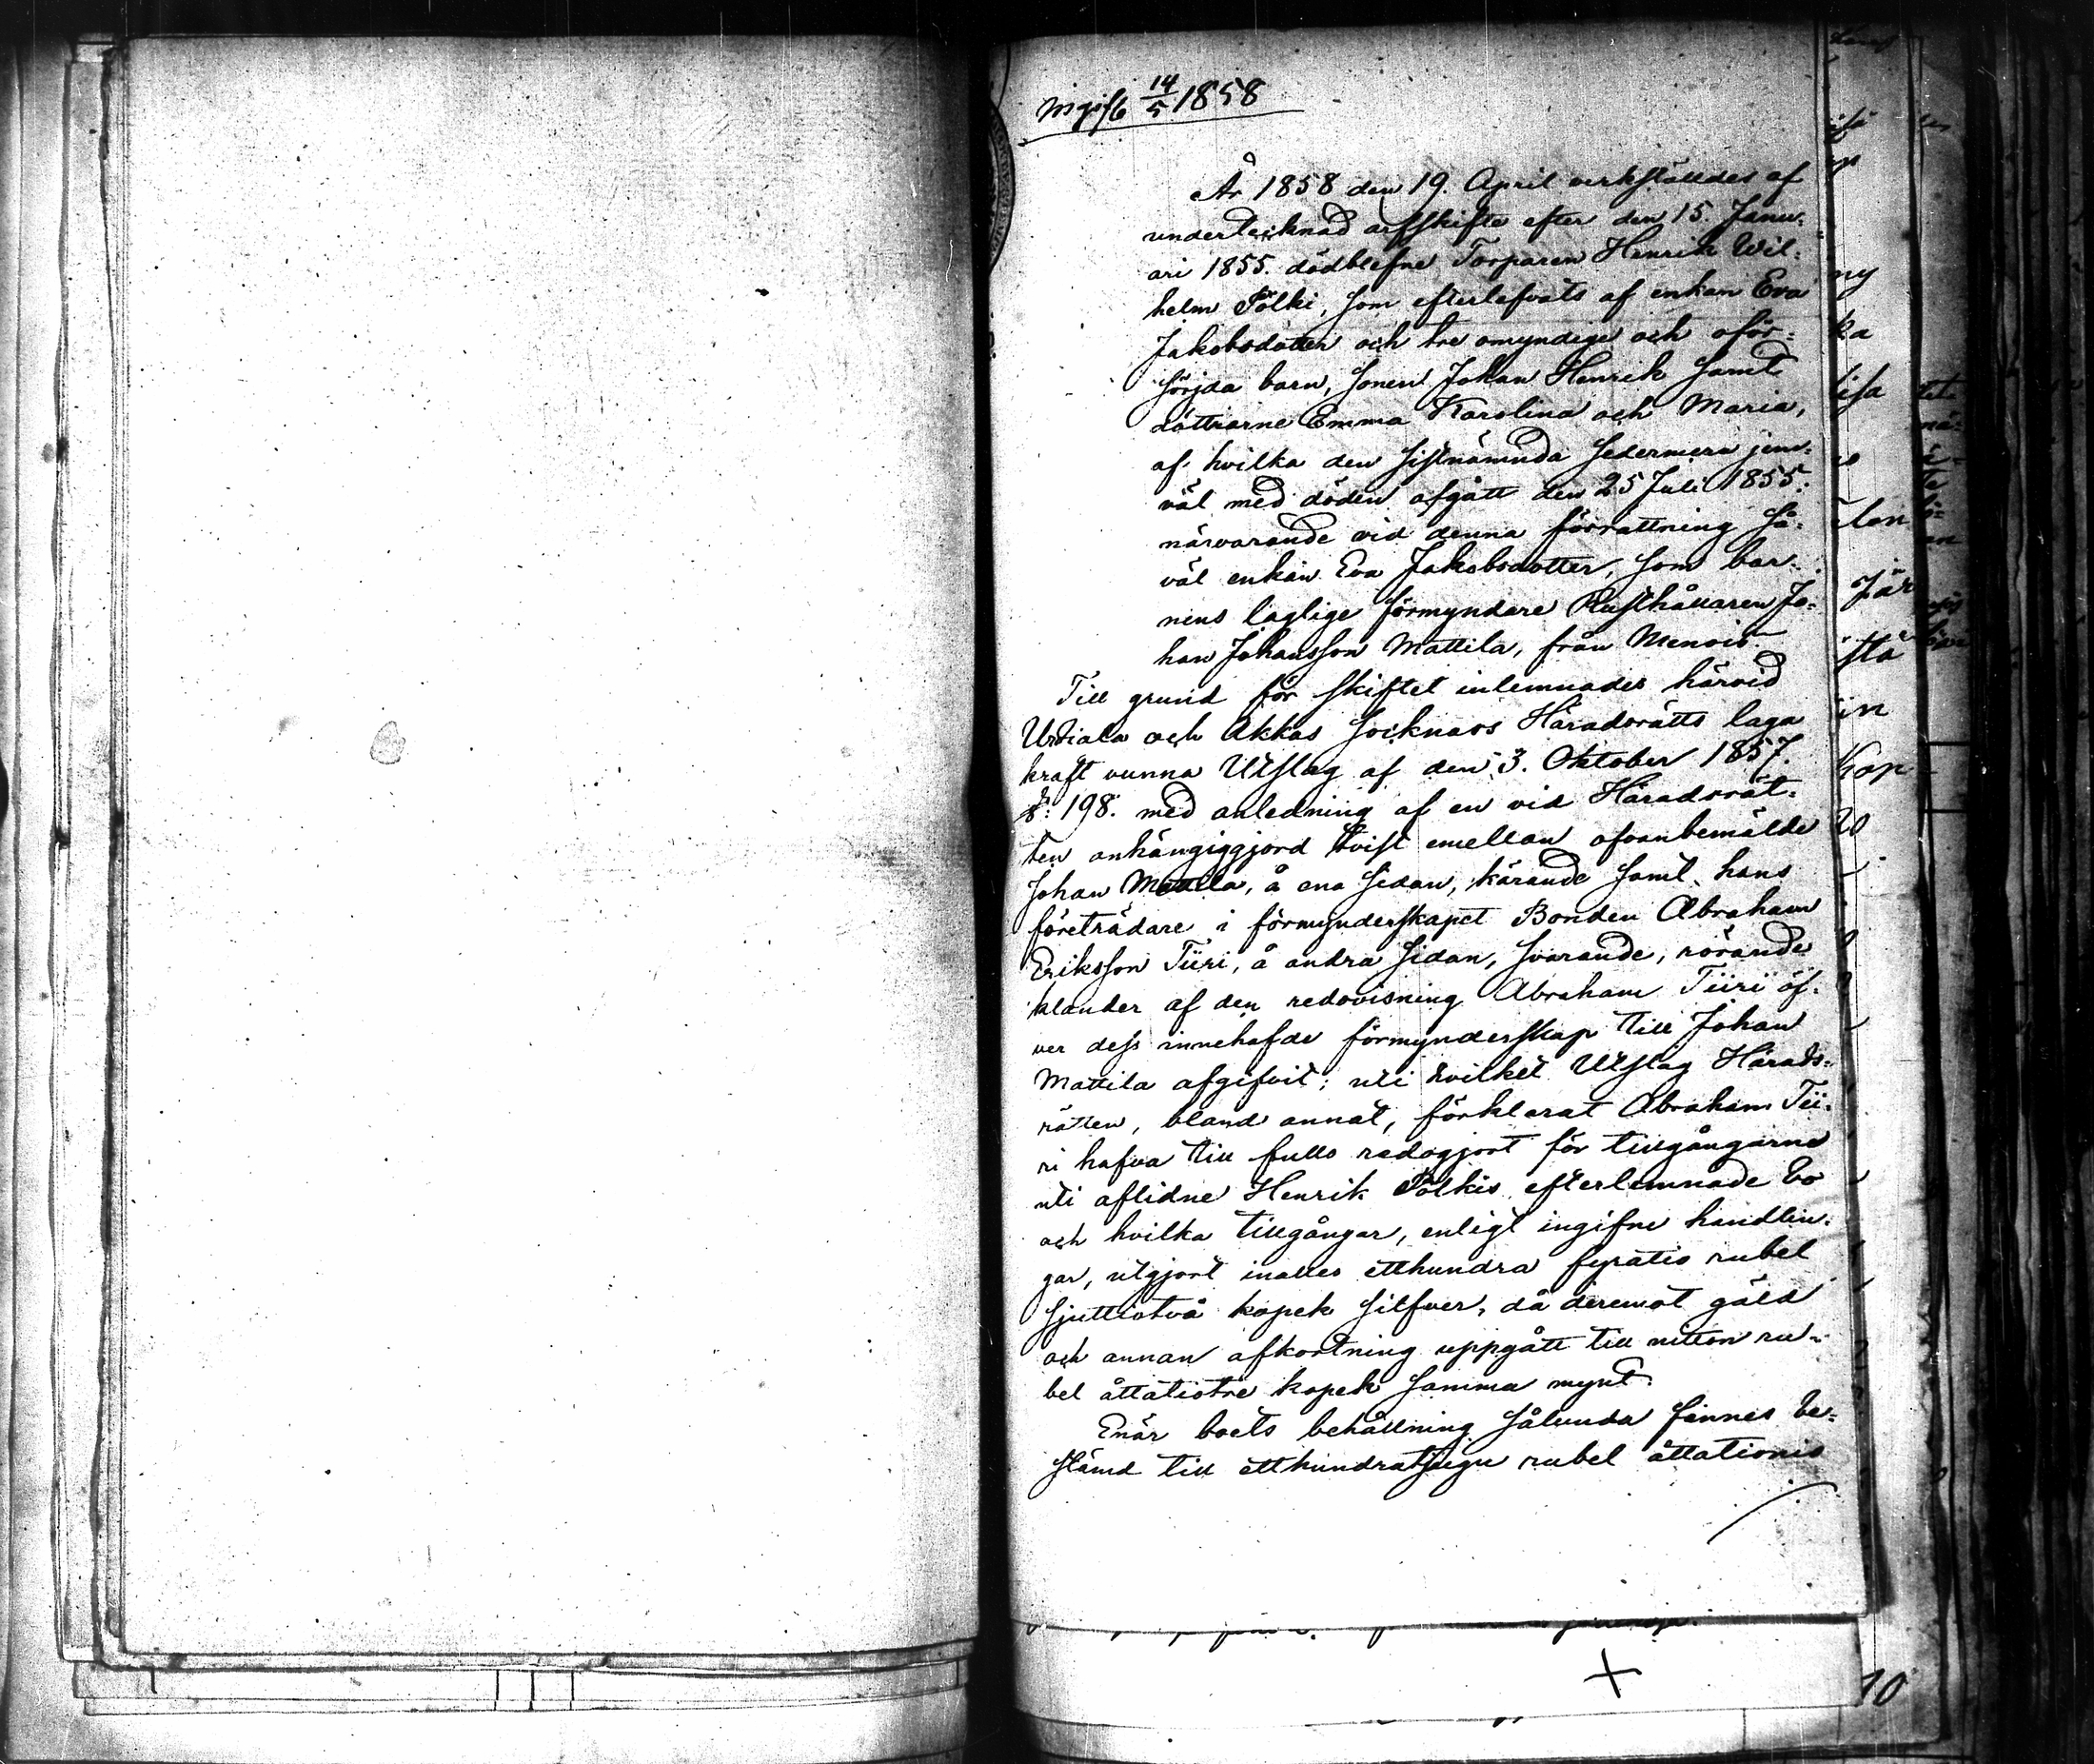 Ingift 14/5 1858
År 1858 den 19. April verkställdes af
undertecknad arfskifte efter den 15. Janu-
ari 1855. dödblefne Torparen Henrik Wil-
helm Pölki, som efterlefvats af enkan Eva
Jakobsdotter och tre omyndige och oför-
sörjda barn, sonen Johan Henrik samt
döttrarne Emma Karolina och Maria,
af hvilka den sistnämnda sedermera jem-
väl med döden afgått den 25 Juli 1855:
närvarande vid denna förrättning så-
väl enkan Eva Jakobsdotter, som bar-
nens laglige förmyndare Rusthållaren Jo-
han Johansson Mattila, från Menois.
Till grund för skiftet inlemnades härvid
Urdiala och Akkas Socknars Häradsrätts laga
kraft vunna Utslag af den 3. Oktober 1857.
§: 198. med anledning af en vid Häradsrät-
ten anhängiggjord tvist emellan ofvanbemälde
Johan Mattila, å ena sidan, kärande samt hans
företrädare i förmynderskapet Bonden Abraham
Eriksson Tiiri, å andra sidan, svarande, rörande
klander af den redovisning Abraham Tiiri öf-
ver dess innehafde förmynderskap till Johan
Mattila afgifvit; uti hvilket Utslag Härads-
rätten, bland annat, förklarat Abraham Tii-
ri hafva till fullo redogjort för tillgångarne
uti aflidne Henrik Pölkis efterlemnade bo
och hvilka tillgångar, enligt ingifne handlin-
gar, utgjort inalles etthundra fyratio rubel
sjuttiotvå kopek silfver, då deremot gäld
och annan afkortning uppgått till nitton ru-
bel åttatiotre kopek samma mynt.
Enär boets behållning sålunda finnes be-
stämd till etthundratjugu rubel åttationio
10